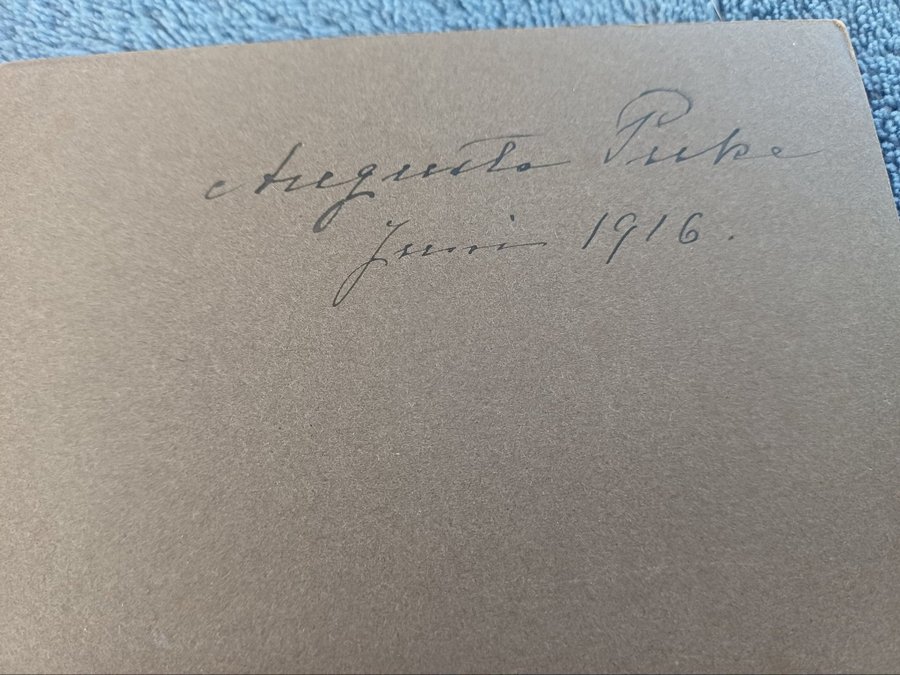 Augusta Puke
Juni 1916.